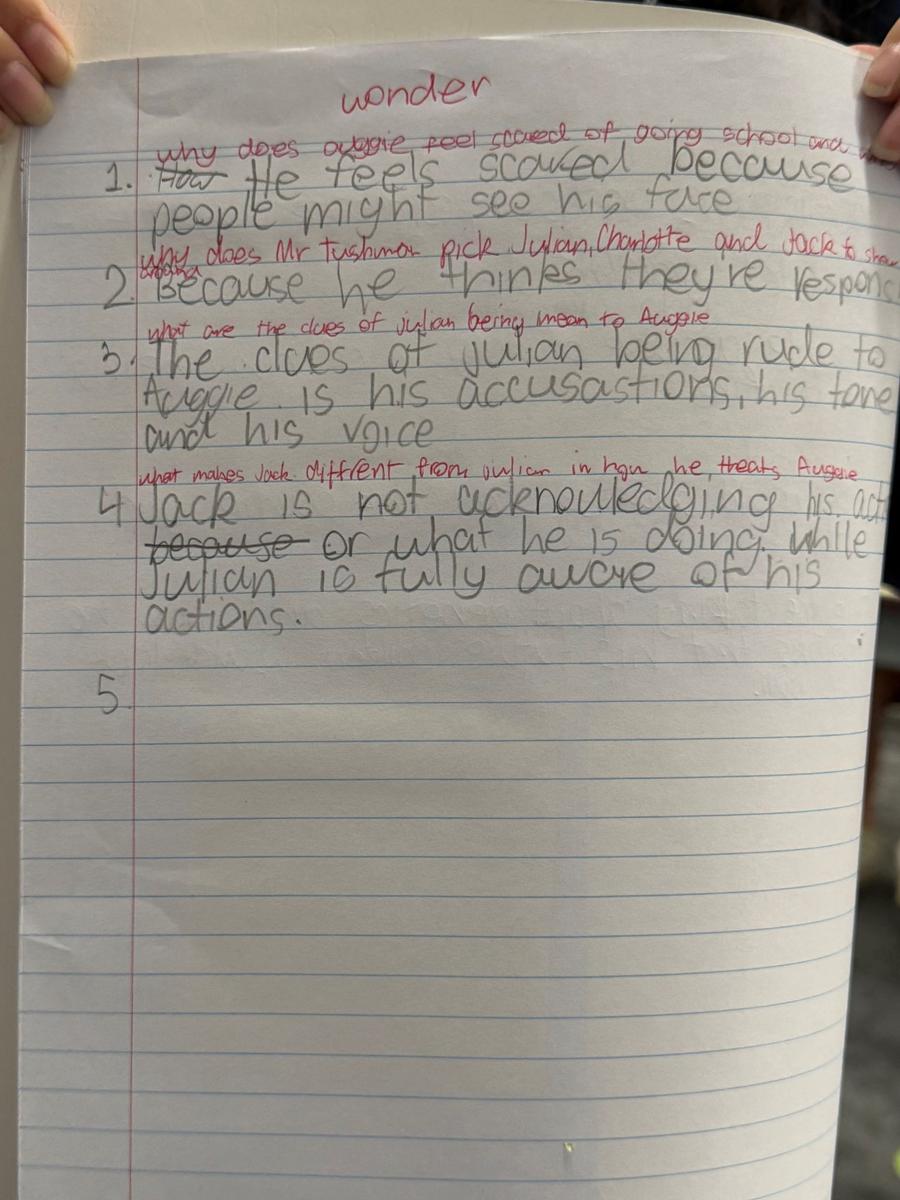 wonder
why does auggie feel scared of going school and
1. How He feels scared because
people might see his face
why does Mr Tushman pick Julian, Charlotte and Jack to show
around
2. Because he thinks they're respons
what are the clues of julian being mean to Auggie
3. The clues of julian being rude to
Auggie is his accusastions, his tone
and his voice
what makes Jack diffrent from Julian in how he treats Auggie
4 Jack is not acknowledging his act
because or what he is doing. While
Julian is fully aware of his
actions.
5.